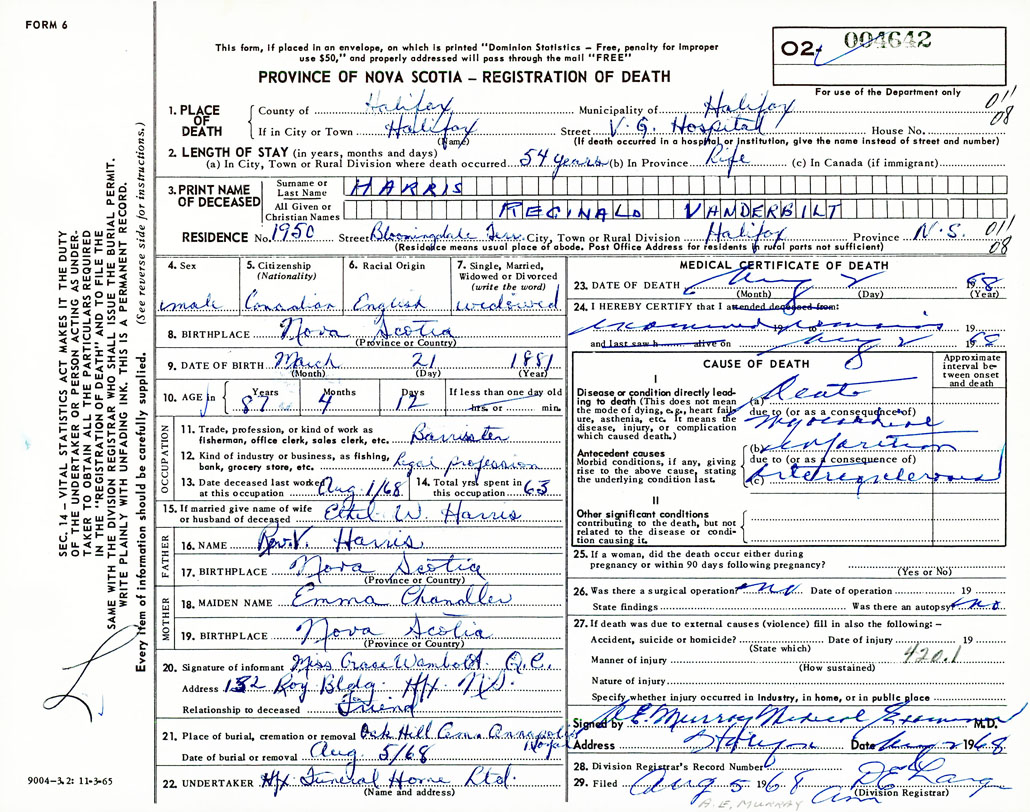 FORM 6
This form, if placed in an envelope, on which is printed "Dominion Statistics – Free, penalty for improper
use $50," and properly addressed will pass through the mail "FREE"
PROVINCE OF NOVA SCOTIA – REGISTRATION OF DEATH
02- 004642
For use of the Department only
1. PLACE OF DEATH
County of Halifax Municipality of Halifax 011
08
If in City or Town Halifax Street V. G. Hospital House No.
(Name) (If death occurred in a hospital or institution, give the name instead of street and number)
2. LENGTH OF STAY (in years, months and days)
(a) In City, Town or Rural Division where death occurred 54 years (b) In Province Life (c) In Canada (if immigrant)
3. PRINT NAME OF DECEASED
Surname or Last Name HARRIS
All Given or Christian Names REGINALD VANDERBILT
RESIDENCE No. 1950 Street Bloomingdale Terr. City, Town or Rural Division Halifax Province N.S. 011
08
(Residence means usual place of abode. Post Office Address for residents in rural parts not sufficient)
4. Sex
male
5. Citizenship (Nationality)
Canadian
6. Racial Origin
English
7. Single, Married, Widowed or Divorced (write the word)
widowed
8. BIRTHPLACE Nova Scotia
(Province or Country)
9. DATE OF BIRTH March 21 1881
(Month) (Day) (Year)
10. AGE in Years Months Days If less than one day old
87 4 12 hrs. or min.
OCCUPATION
11. Trade, profession or kind of work as
fisherman, office clerk, sales clerk, etc. Barrister
12. Kind of industry or business, as fishing,
bank, grocery store, etc. legal profession
13. Date deceased last worked
at this occupation Aug. 1/68
14. Total yrs. spent in
this occupation 63
15. If married give name of wife
or husband of deceased Ethel W. Harris
FATHER
16. NAME Rev. V. Harris
17. BIRTHPLACE Nova Scotia
(Province or Country)
MOTHER
18. MAIDEN NAME Emma Chandler
19. BIRTHPLACE Nova Scotia
(Province or Country)
20. Signature of informant Miss Grace Wambolt Q.C.
Address 132 Roy Bldg. Hfx N.S.
Relationship to deceased Friend
21. Place of burial, cremation or removal Oak Hill Cem. Annapolis
Royal
Date of burial or removal Aug. 5/68
22. UNDERTAKER Hfx Funeral Home Ltd.
(Name and address)
MEDICAL CERTIFICATE OF DEATH
23. DATE OF DEATH Aug 2 1968
(Month) (Day) (Year)
24. I HEREBY CERTIFY that I attended deceased from:
examined remains 19 to 19
and last saw h alive on Aug 2 1968
CAUSE OF DEATH
Approximate interval between onset and death
I
Disease or condition directly lead-
ing to death (This does not mean
the mode of dying, e.g., heart fail-
ure, asthenia, etc. I means the
disease, injury, or complication
which caused death.)
(a) Acute
due to (or as a consequence of)
myocardial
Antecedent causes
Morbid conditions, if any, giving
rise to the above cause, stating
the underlying condition last.
(b) infarction
due to (or as a consequence of)
(c) Arteriosclerosis
II
Other significant conditions
contributing to the death, but not
related to the disease or condi-
tion causing it.
25. If a woman, did the death occur either during
pregnancy or within 90 days following pregnancy?
(Yes or No)
26. Was there a surgical operation? no Date of operation 19
State findings Was there an autopsy? no
27. If death was due to external causes (violence) fill in also the following: –
Accident, suicide or homicide? Date of injury 19
(State which)
420.1
Manner of injury
(How sustained)
Nature of injury
Specify whether injury occurred in Industry, in home, or in public place
Signed by A. E. Murray Medical Examiner M.D.
Address Halifax Date Aug 2 1968
28. Division Registrar's Record Number
29. Filed Aug 5 1968
(Division Registrar)
A. E. MURRAY
SEC. 14 – VITAL STATISTICS ACT MAKES IT THE DUTY
OF THE UNDERTAKER OR PERSON ACTING AS UNDER-
TAKER TO OBTAIN ALL THE PARTICULARS REQUIRED
IN THE "REGISTRATION OF DEATH" AND TO FILE THE
SAME WITH THE DIVISION REGISTRAR WHO SHALL ISSUE THE BURIAL PERMIT.
WRITE PLAINLY WITH UNFADING INK. THIS IS A PERMANENT RECORD.
Every item of information should be carefully supplied. (See reverse side for instructions.)
9004-3.2: 11-3-65